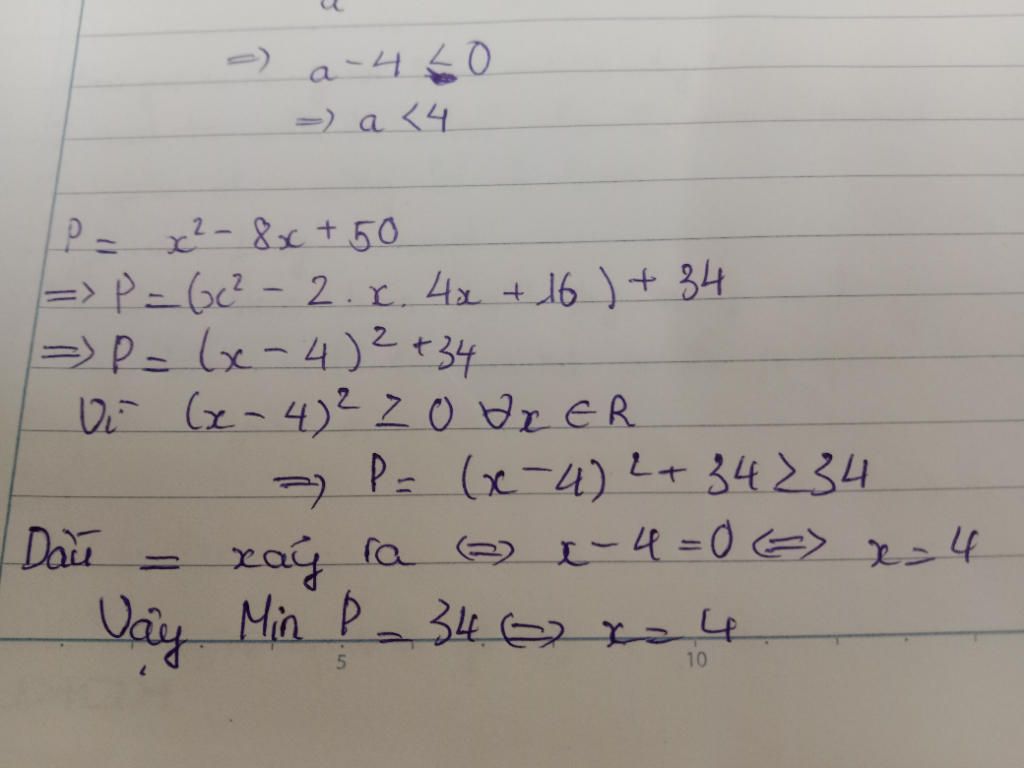 => a - 4 ≤ 0
=> a < 4
P = x² - 8x + 50
=> P = (x² - 2 . x . 4x + 16) + 34
=> P = (x - 4)² + 34
Vì (x - 4)² ≥ 0 ∀x ∈ R
=> P = (x - 4)² + 34 ≥ 34
Dấu = xảy ra <=> x - 4 = 0 <=> x = 4
Vậy Min P = 34 <=> x = 4
5 10